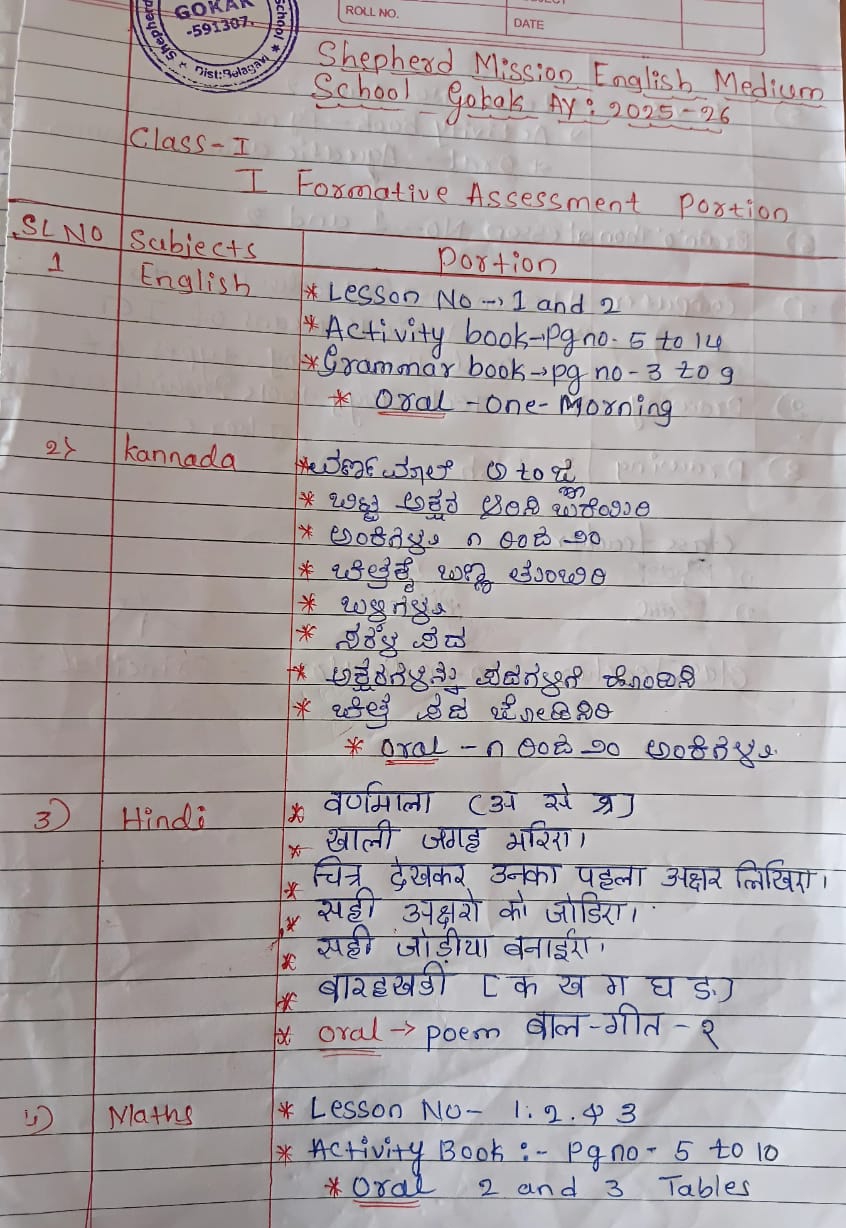 GOKAK
-591307.
Shepherd
School
Dist:Belagavi
ROLL NO.
DATE
Shepherd Mission English Medium
School Gokak AY: 2025-26
Class-I
I Formative Assessment Portion
SL NO Subjects Portion
1 English * Lesson No → 1 and 2
* Activity book → Pg no. 5 to 14
* Grammar book → pg no - 3 to 9
* Oral - One - Morning
2) Kannada * ವರ್ಣಮಾಲೆ ಅ to
* ಬಿಟ್ಟ ಅಕ್ಷರ
* ಅಂಕಿಗಳು ೧ ರಿಂದ ೨೦
* ಚಿತ್ರಕ್ಕೆ ಬಣ್ಣ ತುಂಬಿರಿ
* ಬಣ್ಣಗಳು
* ಸರಳ ಪದ
* ಅಕ್ಷರಗಳನ್ನು ಪದಗಳಿಗೆ ಹೊಂದಿಸಿ
* ಚಿತ್ರ ಪದ ಜೋಡಿಸಿರಿ
* Oral - ೧ ರಿಂದ ೨೦ ಅಂಕಿಗಳು.
3) Hindi * वर्णमाला (अ से श्र)
* खाली जगह भरिए।
* चित्र देखकर उनका पहला अक्षर लिखिए।
* सही अक्षरो को जोडिए।
* सही जोड़ीया बनाईए।
* बारहखडी [क ख ग घ ङ]
* Oral → poem बाल-गीत - १
4) Maths * Lesson No - 1. 2. & 3
* Activity Book :- Pg no - 5 to 10
* Oral 2 and 3 Tables